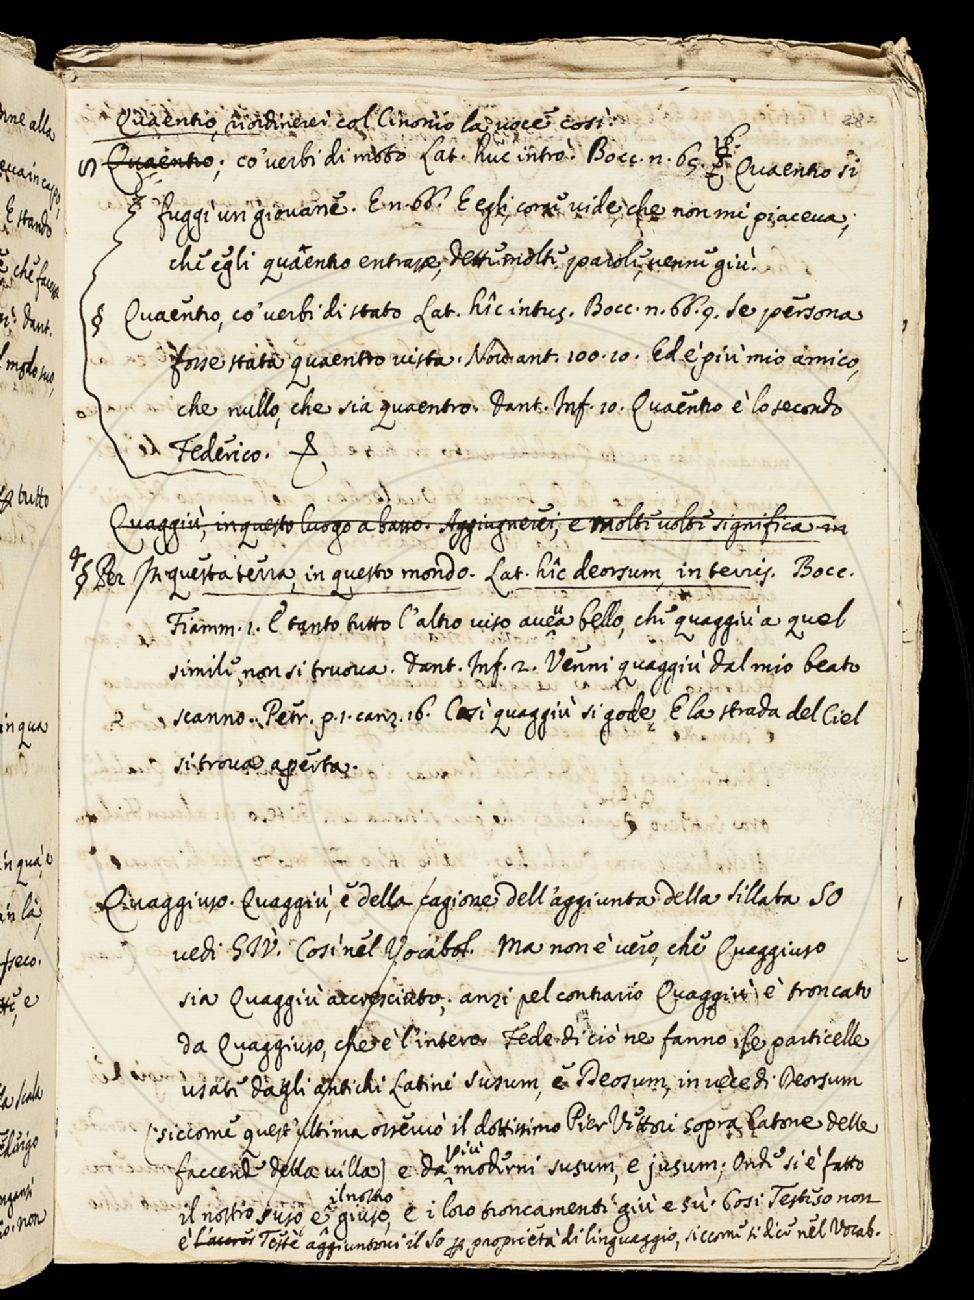 28
Quaentro, riordinerei col Cinonio la voce così:
§ Quaentro; co' verbi di moto Lat. huc intro. Bocc. n. 65. 16. Quaentro si
fuggì un giovane. E n. 66. E egli, come vide, che non mi piaceva,
che egli quaentro entrasse, dette molte parole, venne giù.
§ Quaentro, co' verbi di stato Lat. hîc intus. Bocc. n. 66. 9. Se persona
fosse stata quaentro vista. Nov. ant. 100. 10. Ed è più mio amico,
che nullo, che sia quaentro. Dant. Inf. 10. Quaentro è lo secondo
Federico.
Quaggiù, in questo luogo a basso. Aggiugnerei, e molte volte significa in
§ Per in questa terra, in questo mondo. Lat. hîc deorsum, in terris. Bocc.
Fiamm. 1. E tanto tutto l'altro viso avea bello, che quaggiù a quel
simile non si truova. Dant. Inf. 2. Venni quaggiù dal mio beato
scanno. Petr. p. 1. canz. 16. Così quaggiù si gode, E la strada del Ciel
si trova aperta.
Quaggiuso. Quaggiù, e della cagione dell'aggiunta della sillaba SO
vedi GIÙ. Così nel Vocabol. Ma non è vero, che Quaggiuso
sia Quaggiù accresciuto; anzi pel contrario Quaggiù è troncato
da Quaggiuso, che è l'intero. Fede di ciò ne fanno le particelle
usate dagli antichi Latini Susum, e Deosum, in vece di Deorsum
(siccome quest'ultima osservò il dottissimo Pier Vettori sopra Catone delle
faccende della villa) e da più moderni susum, e jusum; Onde si è fatto
il nostro suso e il nostro giuso, e i loro troncamenti giù e sù. Così Testeso non
è Testè aggiuntovi il so per proprietà di linguaggio, siccome si dice nel Vocab.